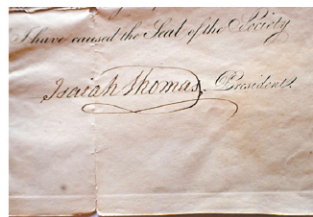 I have caused the Seal of the Society
Isaiah Thomas, President.